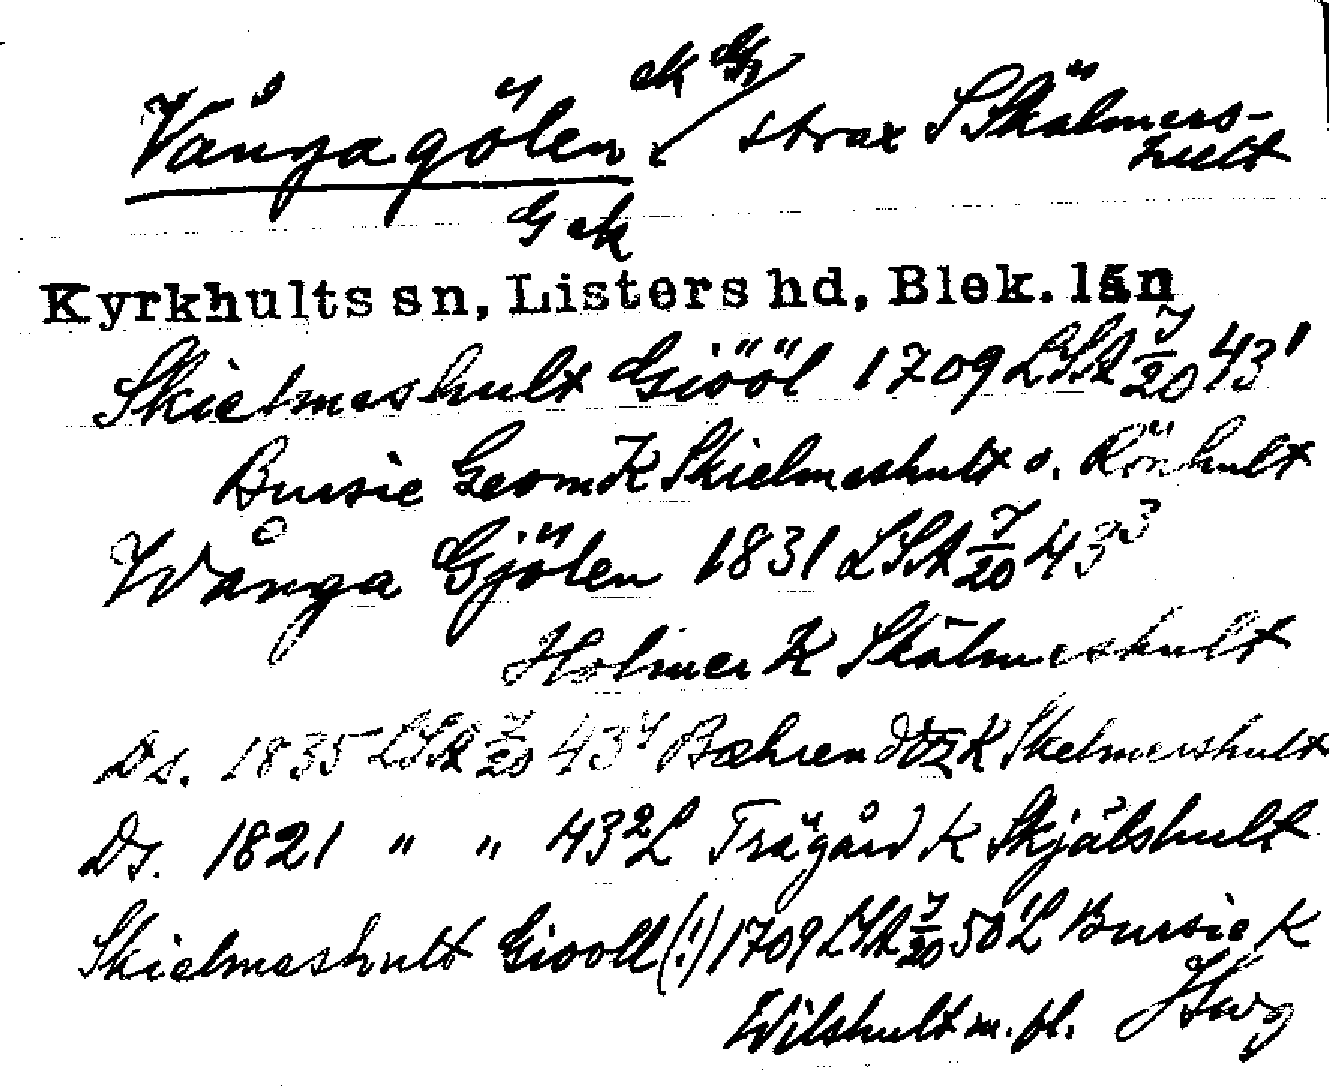 Vångagölen ek G strax S Skälmers-
hult
G ek
Kyrkhults sn, Listers hd, Blek. län
Skielmeshult Giööl 1709 LSA 7/20 43¹
Bursie Geom K Skielmeshult o. Rönhult
Wånga Gjölen 1831 LSA 7/20 43³
Holmer K Skälmeshult
Ds. 1835 LSA 7/20 43⁴ Bæhrendtz K Skelmershult
Ds. 1821 " " 43² L Trägård K Skjälshult
Skielmeshult Giooll (!) 1709 LSA 7/20 50¹ L Bursie K
Wilshult m. fl. Hwg